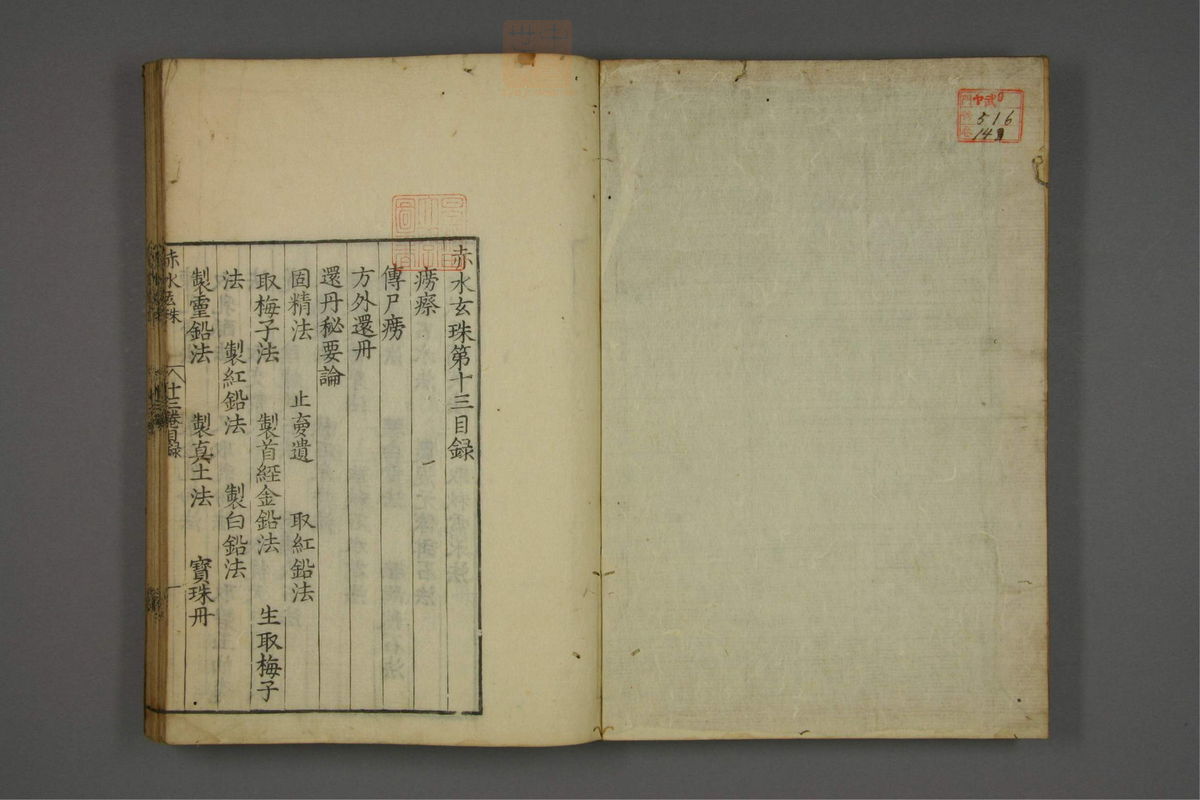 516
14
赤水玄珠第十三目録
癆瘵
傳尸癆
方外還丹
還丹秘要論
固精法　止夢遺　取紅鉛法
取梅子法　製首経金鉛法　生取梅子
法　製紅鉛法　製白鉛法
製靈鉛法　製真土法　寶珠丹
赤水玄珠　十三卷目録　一